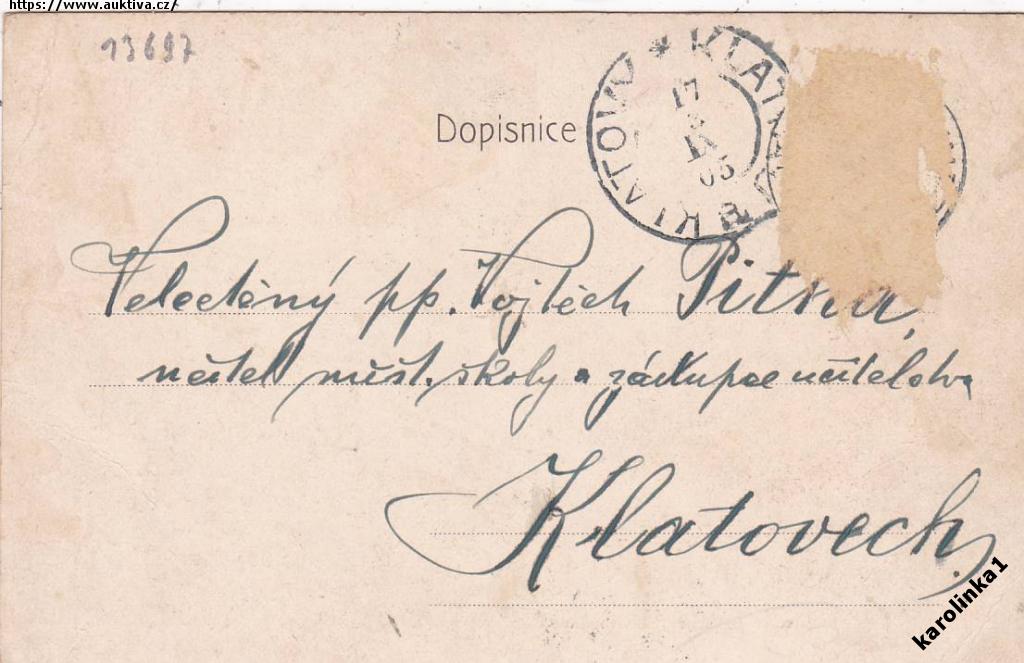 https://www.auktiva.cz/
13697
KLATOVY * KLAT
17
IX
05
Dopisnice
Velectěný pp. Vojtěch Pitna,
učitel měšt. školy a zástupce učitelstva
Klatovech.
karolinka1